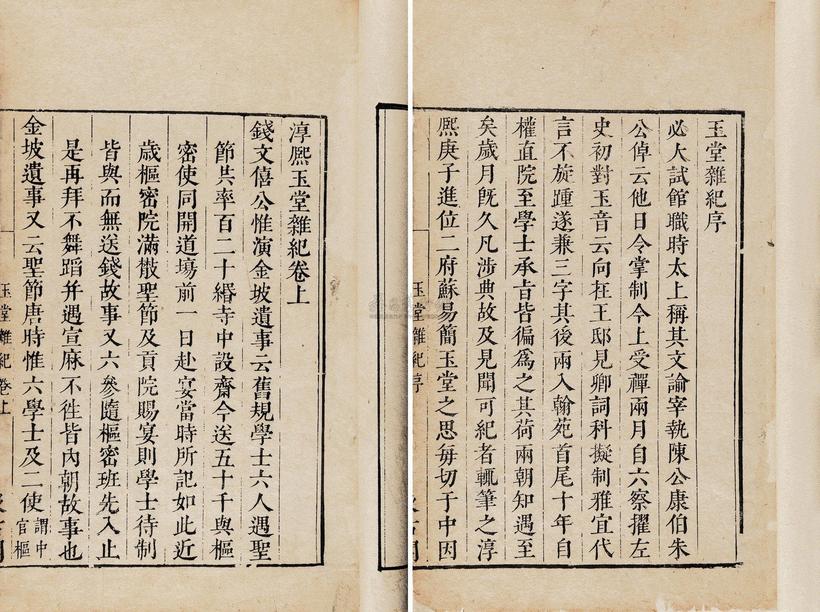 玉堂雜紀序
必大試館職時太上稱其文諭宰執陳公康伯朱
公倬云他日令掌制今上受禪兩月自六察擢左
史初對玉音云向在王邸見卿詞科擬制雅宜代
言不旋踵遂兼三字其後兩入翰苑首尾十年自
權直院至學士承旨皆徧爲之其荷兩朝知遇至
矣歲月旣久凡涉典故及見聞可紀者輒筆之淳
熈庚子進位二府蘇易簡玉堂之思每切于中因
玉堂雜紀序
淳熈玉堂雜紀卷上
錢文僖公惟演金坡遺事云舊規學士六人遇聖
節共率百二十緡寺中設齋今送五十千與樞
密使同開道場前一日赴宴當時所記如此近
歳樞密院滿散聖節及貢院賜宴則學士待制
皆與而無送錢故事又六參隨樞密班先入止
是再拜不舞蹈并遇宣麻不徃皆內朝故事也
金坡遺事又云聖節唐時惟六學士及二使謂中官樞
玉堂雜紀卷上